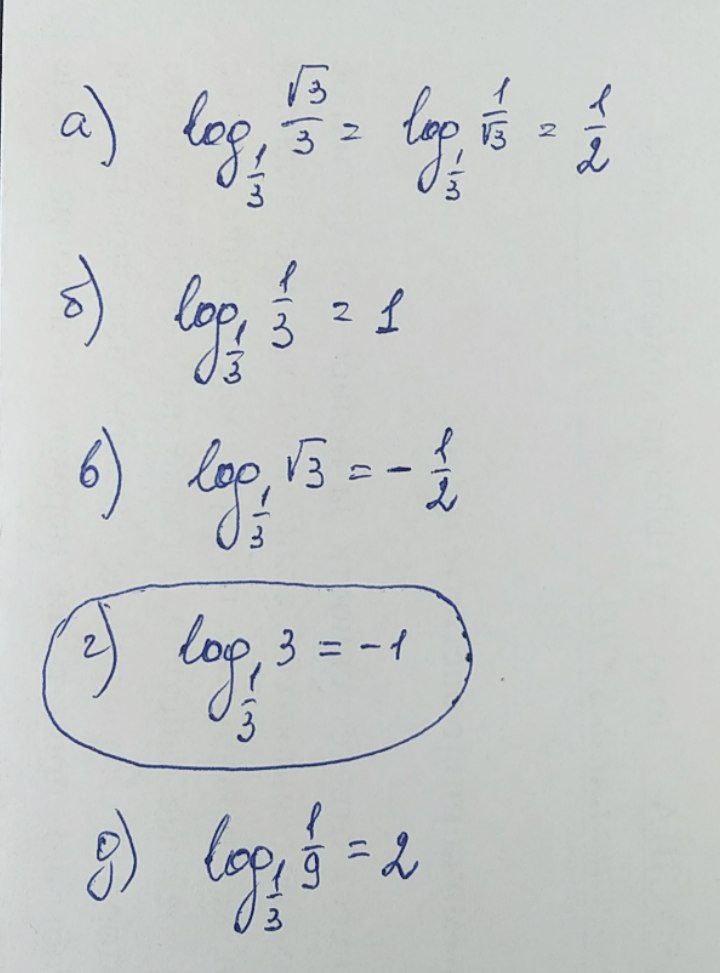 а) log_{1/3} √3/3 = log_{1/3} 1/√3 = 1/2
б) log_{1/3} 1/3 = 1
в) log_{1/3} √3 = - 1/2
г) log_{1/3} 3 = -1
д) log_{1/3} 1/9 = 2